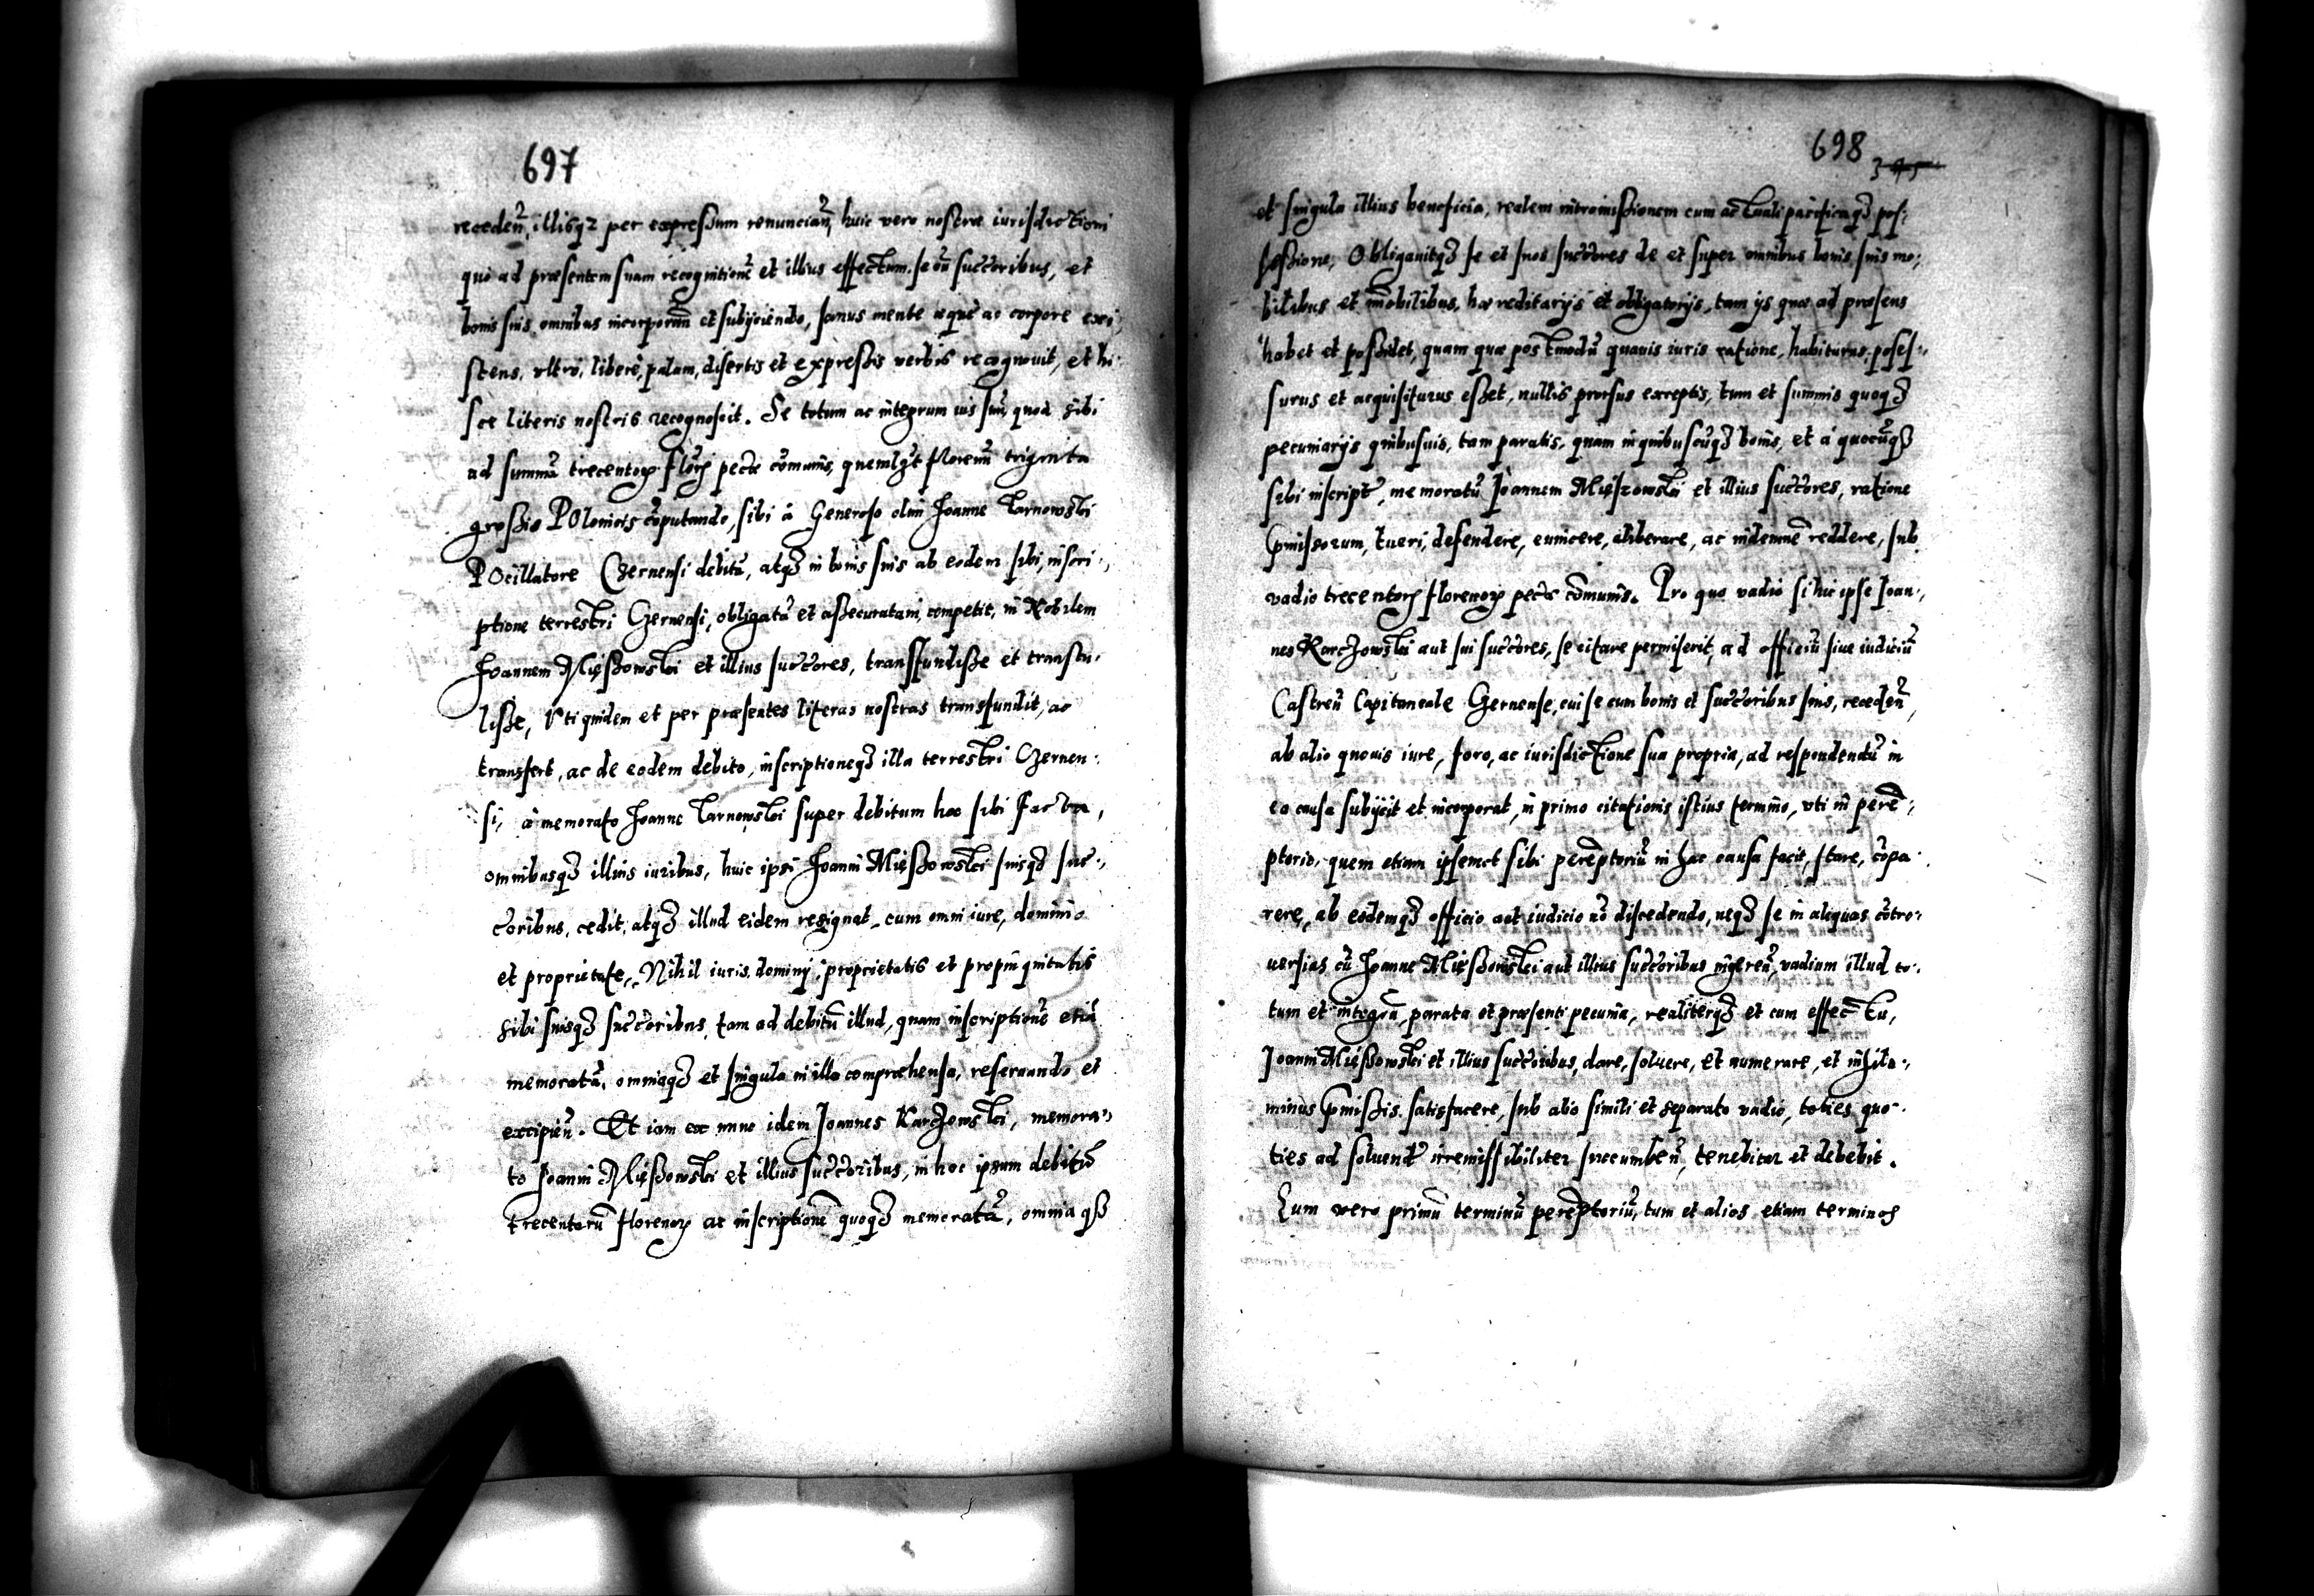 697
receden̄, illisqz per expressum renuncian̄, huic vero nostræ iurisdictioni
quo ad præsentem suam recognitionē et illius effectum, se cū succꝰoribus, et
bonis suis omnibus incorporan̄ et subijciendo, sanus mente æque ac corpore exi,
stens, vltro, libere, palam, disertis et expressis verbis recognouit, et hi-
sce literis nostris recognoscit. Se totum ac integrum ius suū, quod sibi
ad summā trecentorꝝ florꝝ pecūe cōmunis, quemlꝫt florenū triginta
grossis Polonicis cōputando, sibi à Generoso olim Joanne Tarnowski
Pocillatore Czernensi debitā, atqꝫ in bonis suis ab eodem sibi, inscri-,
ptione terrestri Czernensi, obligatā et assecuratam, competit, in Nobilem
Joannem Myęszowski et illius succꝰores, transfundisse et transtu-
lisse, Vti quidem et per præsentes literas nostras transfundit, ac
transfert, ac de eodem debito, inscriptioneqꝫ illa terrestri Czernen-
si, à memorato Joanne Tarnowski super debitum hoc sibi facta,
omnibusqꝫ illius iuribus, huic ipsi Joanni Mięszowski suisqꝫ suc-,
cꝰoribus, cedit, atqꝫ illud eidem resignat, cum omni iure, dominio
et proprietate, Nihil iuris, dominij, proprietatis et propinquitatis
sibi suisqꝫ succꝰoribus, tam ad debitū illud, quam inscriptionē etiā
memoratā, omniaqꝫ et singula in illa compræhensa, reseruando et
excipien̄. Et iam ex nunc idem Joannes Karczowski, memora-,
to Joanni Myęszowski et illius succꝰoribus, in hoc ipsum debitū
trecentorū florenoꝝ ac inscriptionē quoqꝫ memoratā, omnia qꝫ
698
345
et singula illius beneficia, realem intromissionem cum actuali pacificaqꝫ pos-
sessione, Obligauitqꝫ se et suos succꝰores de et super omnibus bonis suis mo-,
bilibus et īmobilibus, hæreditarijs et obligatorijs, tam ijs quæ ad præsens
habet et possidet, quam quæ postmodū quauis iuris ratione, habiturus, poses-,
surus et acquisiturus esset, nullis prorsus exceptis, tum et summis quoqꝫ
pecuniarijs quibusuis, tam paratis, quam in quibuscūqꝫ bonis, et à quocūqꝫ
sibi inscript̄, memoratū Joannem Mięszowski et illius succꝰores, ratione
p̄missorum, tueri, defendere, euincere, aliberare, ac indemnē reddere, sub
vadio trecentorꝝ florenoꝝ pecūe cōmunis. Pro quo vadio si hic ipse Joan-,
nes Karczowski aut sui succꝰores, se citare permiserit, ad officiū siue iudiciū
Castren̄ Capitaneale Czernense, cui se cum bonis et succꝰoribus suis, receden̄,
ab alio quouis iure, foro, ac iurisdictione sua propria, ad respondendū in
ea causa subijcit et incorporat, in primo citationis istius termino, vti in perē-,
ptorio, quem etiam ipsemet sibi perēptoriū in hac causa facit, stare, cōpa-
rere, ab eodemqꝫ officio aut iudicio nō discedendo, neqꝫ se in aliquas cōtro-,
uersias cū Joanne Mięszowski aut illius succꝰoribus ingeren̄, vadium illud to-.
tum et integrū, parata et præsenti pecunia, realiterqꝫ et cum effectu,
Joanni Mięszowski et illius succꝰoribus, dare, soluere, et numerare, et nihilo-,
minus p̄missis satisfacere, sub alio simili et separato vadio, toties quo-
ties ad soluend̄ irremissibiliter succumben̄, tenebitur et debebit.
Eum vero primū terminū perēptoriū, tum et alios etiam terminos